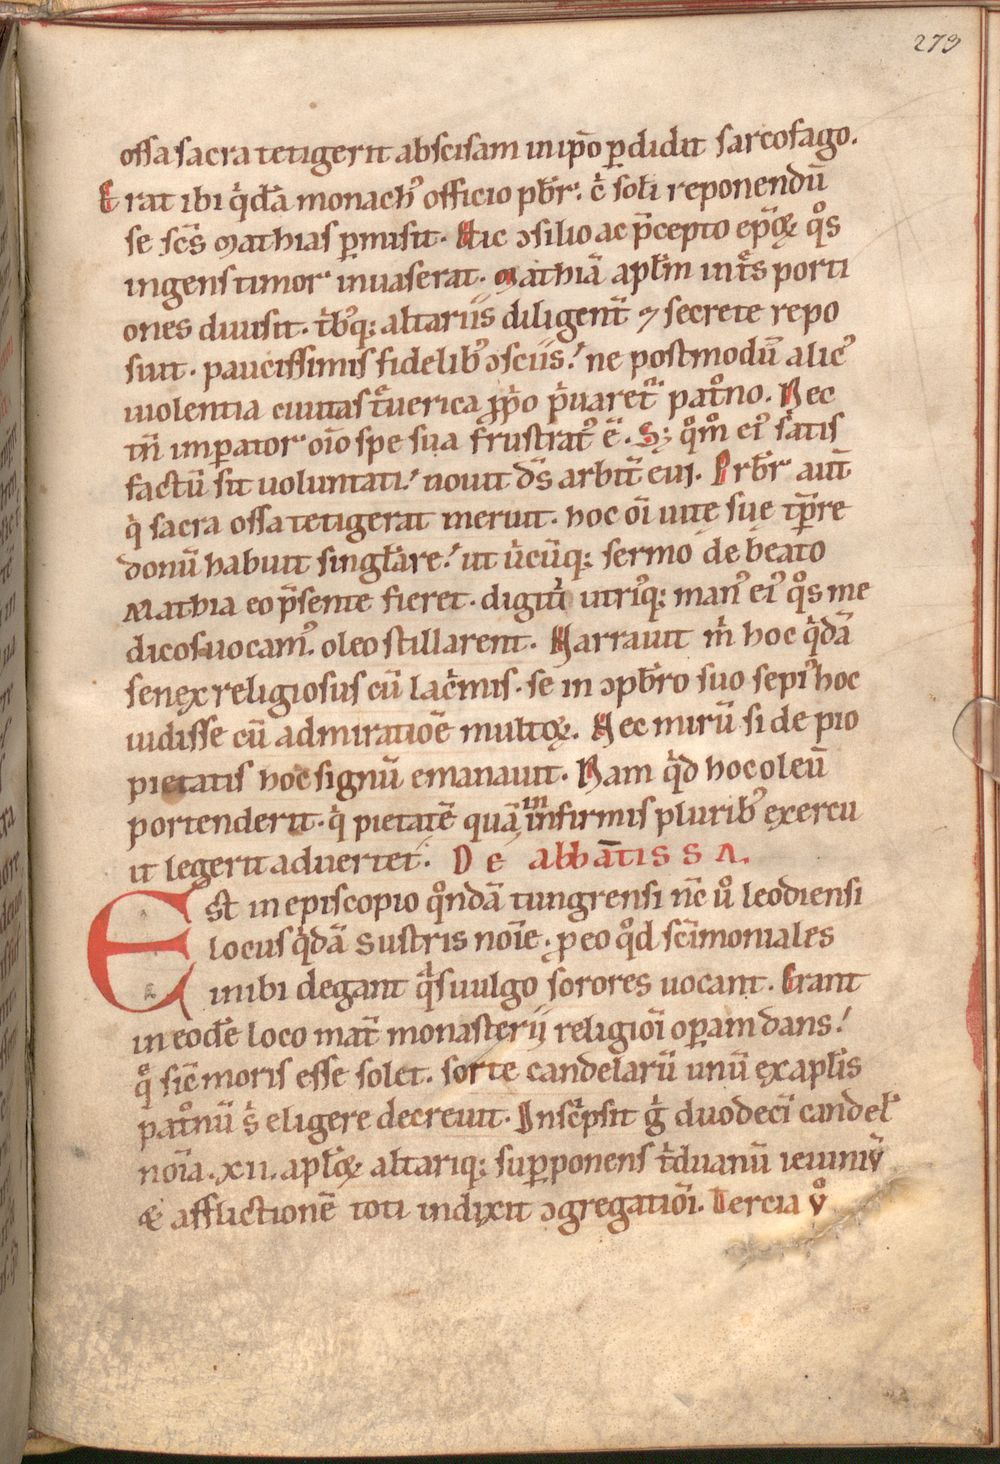 273
ossa sacra tetigerit abscisam in ip̄o ꝑdidit sarcofago.
Erat ibi qͥdā monachꝰ officio pb̄r. cͥ soli reponendū
se sc̄s mathias ꝑmisit. Hic ↄsilio ac p̄cepto ep̄oꝝ qͦs
ingens timor inuaserat. mathiā apl̄m in tͬs porti
ones diuisit. tͥbꝰq; altariis diligent̄ ⁊ secrete repo
suit. paucissimis fidelibꝰ ↄsciis. ne postmodū alicꝰ
uiolentia ciuitas tͬuerica ꝓpͥo pͥuaret᷑ patͦno. Nec
tn̄ imꝑator oīo spe sua frustratꝰ ē. S; qͦm̄ eiꝰ sͣtis
factū sit uoluntati. nouit ds̄ arbit̄ cui. Pr̄br aut̄
qͥ sacra ossa tetigerat meruit. hoc oī uite sue tp̄re
donū habuit singlāre. ut uͥcūq; sermo de beato
Mathia eo p̄sente fieret. digitͥ utriꝰq; manꝰ eiꝰ qͦs me
dicos uocamꝰ oleo stillarent. Narrauit mͥ hoc qͥdā
senex religiosus cū lacͥmis. se in ↄpb̄ro suo sepiꝰ hoc
uidisse cū admiratiōe multoꝝ. Nec mirū si de pio
pietatis hoc signū emanauit. Nam qͥd hoc oleū
portenderit. qͥ pietatē quā in infirmis pluribꝰ exercu
it legerit aduertet. De abbātissa.
Est in episcopio qͦndā tungrensi nc̄ uͦ leodiensi
locus qͥdā sustris noīe. ꝓ eo qͦd sc̄imoniales
inibi degant qͣs uulgo sorores uocant. Erant
in eodē loco mat̄ monasterij religioī oꝑam dans.
qͤ sic̄ moris esse solet. sorte candelarū unū ex apl̄is
patͦnū sͥ eligere decreuit. Inscͥpsit gͥ duodecī candel̄
noīa .xii. apl̄oꝝ altariq; suꝑponens tͥduanū ieiuniū
& afflictionē toti indixit ↄgregatiōi. Tercia uͦ